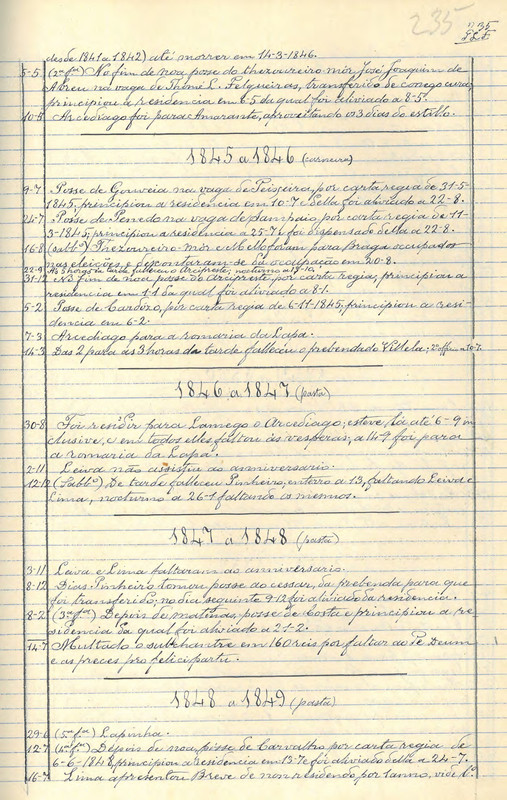 235
n 35
desde 1841 a 1842) até morrer em 14-3-1846.
5-5 (2ª fª) No fim de noa posse do thezoureiro mór José Joaquim de
Abreu na vaga de Thomé L. Felgueiras, transferido de conego cura;
principiou a residencia em 6-5 da qual foi aliviado a 8-5.
10-5 Arcediago foi para Amarante, aproveitando os 3 dias do estillo.
1845 a 1846 (carneira)
9-7 Posse de Gouveia na vaga de Teixeira, por carta regia de 31-5-
1845, principiou a residencia em 10-7 e della foi aliviado a 22-8.
24-7 Posse de Penedo na vaga de Sampaio, por carta regia de 11-
3-1845; principiou a residencia a 25-7 e foi dispensado della a 22-8.
16-8 (sabbº) Thezoureiro-mór e Mello foram para Braga occupados
nas eleições, e descontaram-se da occupação em 20-8.
22-9 Ás 5 horas da tarde falleceu o Arcipreste; nocturno a 13-10.
31-12 No fim de noa posse do Arcipreste por carta regia; principiou a
residencia em 1-1 da qual foi aliviado a 8-1.
5-2 Posse de Cardozo, por carta regia de 6-11-1845; principiou a resi-
dencia em 6-2.
7-3 Arcediago para a romaria da Lapa.
14-3 Das 2 para as 3 horas da tarde falleceu o prebendado Villela; 2º offº a 10-7.
1846 a 1847 (pasta)
30-8 Foi residir para Lamego o Arcediago; esteve lá até 6-9 in
clusive, e em todos elles faltou ás vesperas; a 14-9 foi para
a romaria da Lapa.
2-11 Leiva não assistiu ao anniversario.
12-12 (Sabbº) De tarde falleceu Pinheiro, enterro a 13, faltando Leiva e
Lima, nocturno a 26-1 faltando os mesmos.
1847 a 1848 (pasta)
3-11 Lava e Lima faltaram ao anniversario.
8-12 Dias Pinheiro tomou posse ao cessar, da prebenda para que
foi transferido; no dia seguinte 9-12 foi aliviado da residencia.
8-2 (3ª fª) Depois de matinas, posse de Costa e principiou a re
sidencia da qual foi aliviado a 21-2.
14-7 Multado o subchantre em 160 reis por faltar ao Te Deum
e as preces pro felici partu.
1848 a 1849 (pasta)
29-6 (5ª fª) Lapinha.
12-7 (4ª fª) Depois de noa posse de Carvalho por carta regia de
6-6-1848, principiou a residencia em 13-7 e foi aliviado della a 24-7.
16-7 Lima apresentou Breve de non residendo por 1 anno, vide Lº